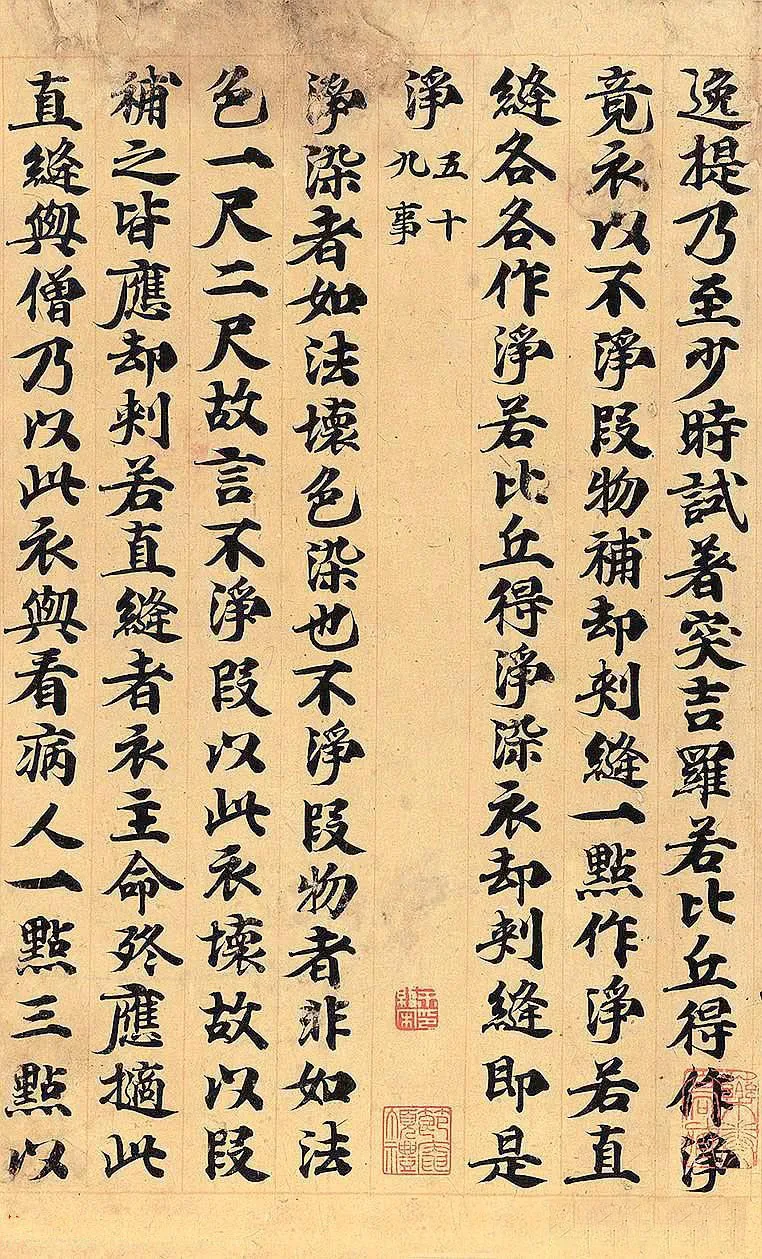 逸提乃至少時試著突吉羅若比丘得作淨
竟衣以不淨段物補却刾縫一點作淨若直
縫各各作淨若比丘得淨染衣却刾縫即是
淨
五十
九事
淨染者如法壞色染也不淨段物者非如法
色一尺二尺故言不淨段以此衣壞故以段
補之皆應却刾若直縫者衣主命終應擿此
直縫與僧乃以此衣與看病人一點三點以